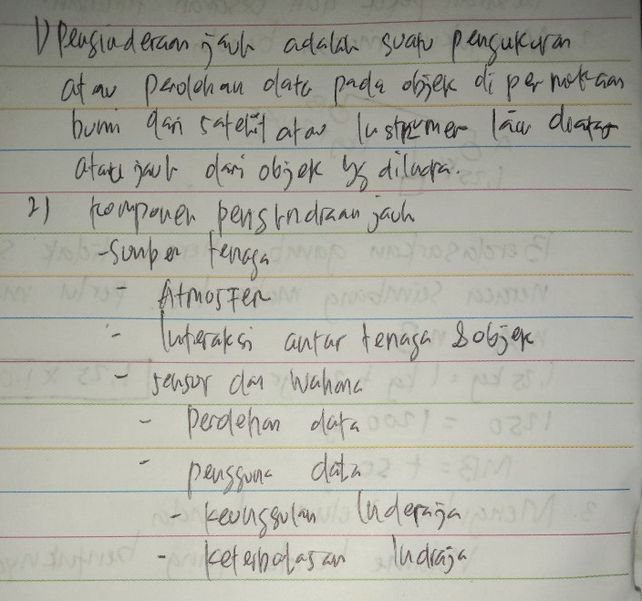 1) Penginderaan jauh adalah suatu pengukuran
atau perolehan data pada objek di permukaan
bumi dari satelit atau Instrumen lain diatas
atau jauh dari objek yg diindra.
2) komponen pengindraan jauh
-Sumber tenaga
- Atmosfer
- Interaksi antar tenaga & objek
- sensor dan wahana
- Perolehan data
- pengguna data
- keunggulan Inderaja
- keterbatasan Indraja